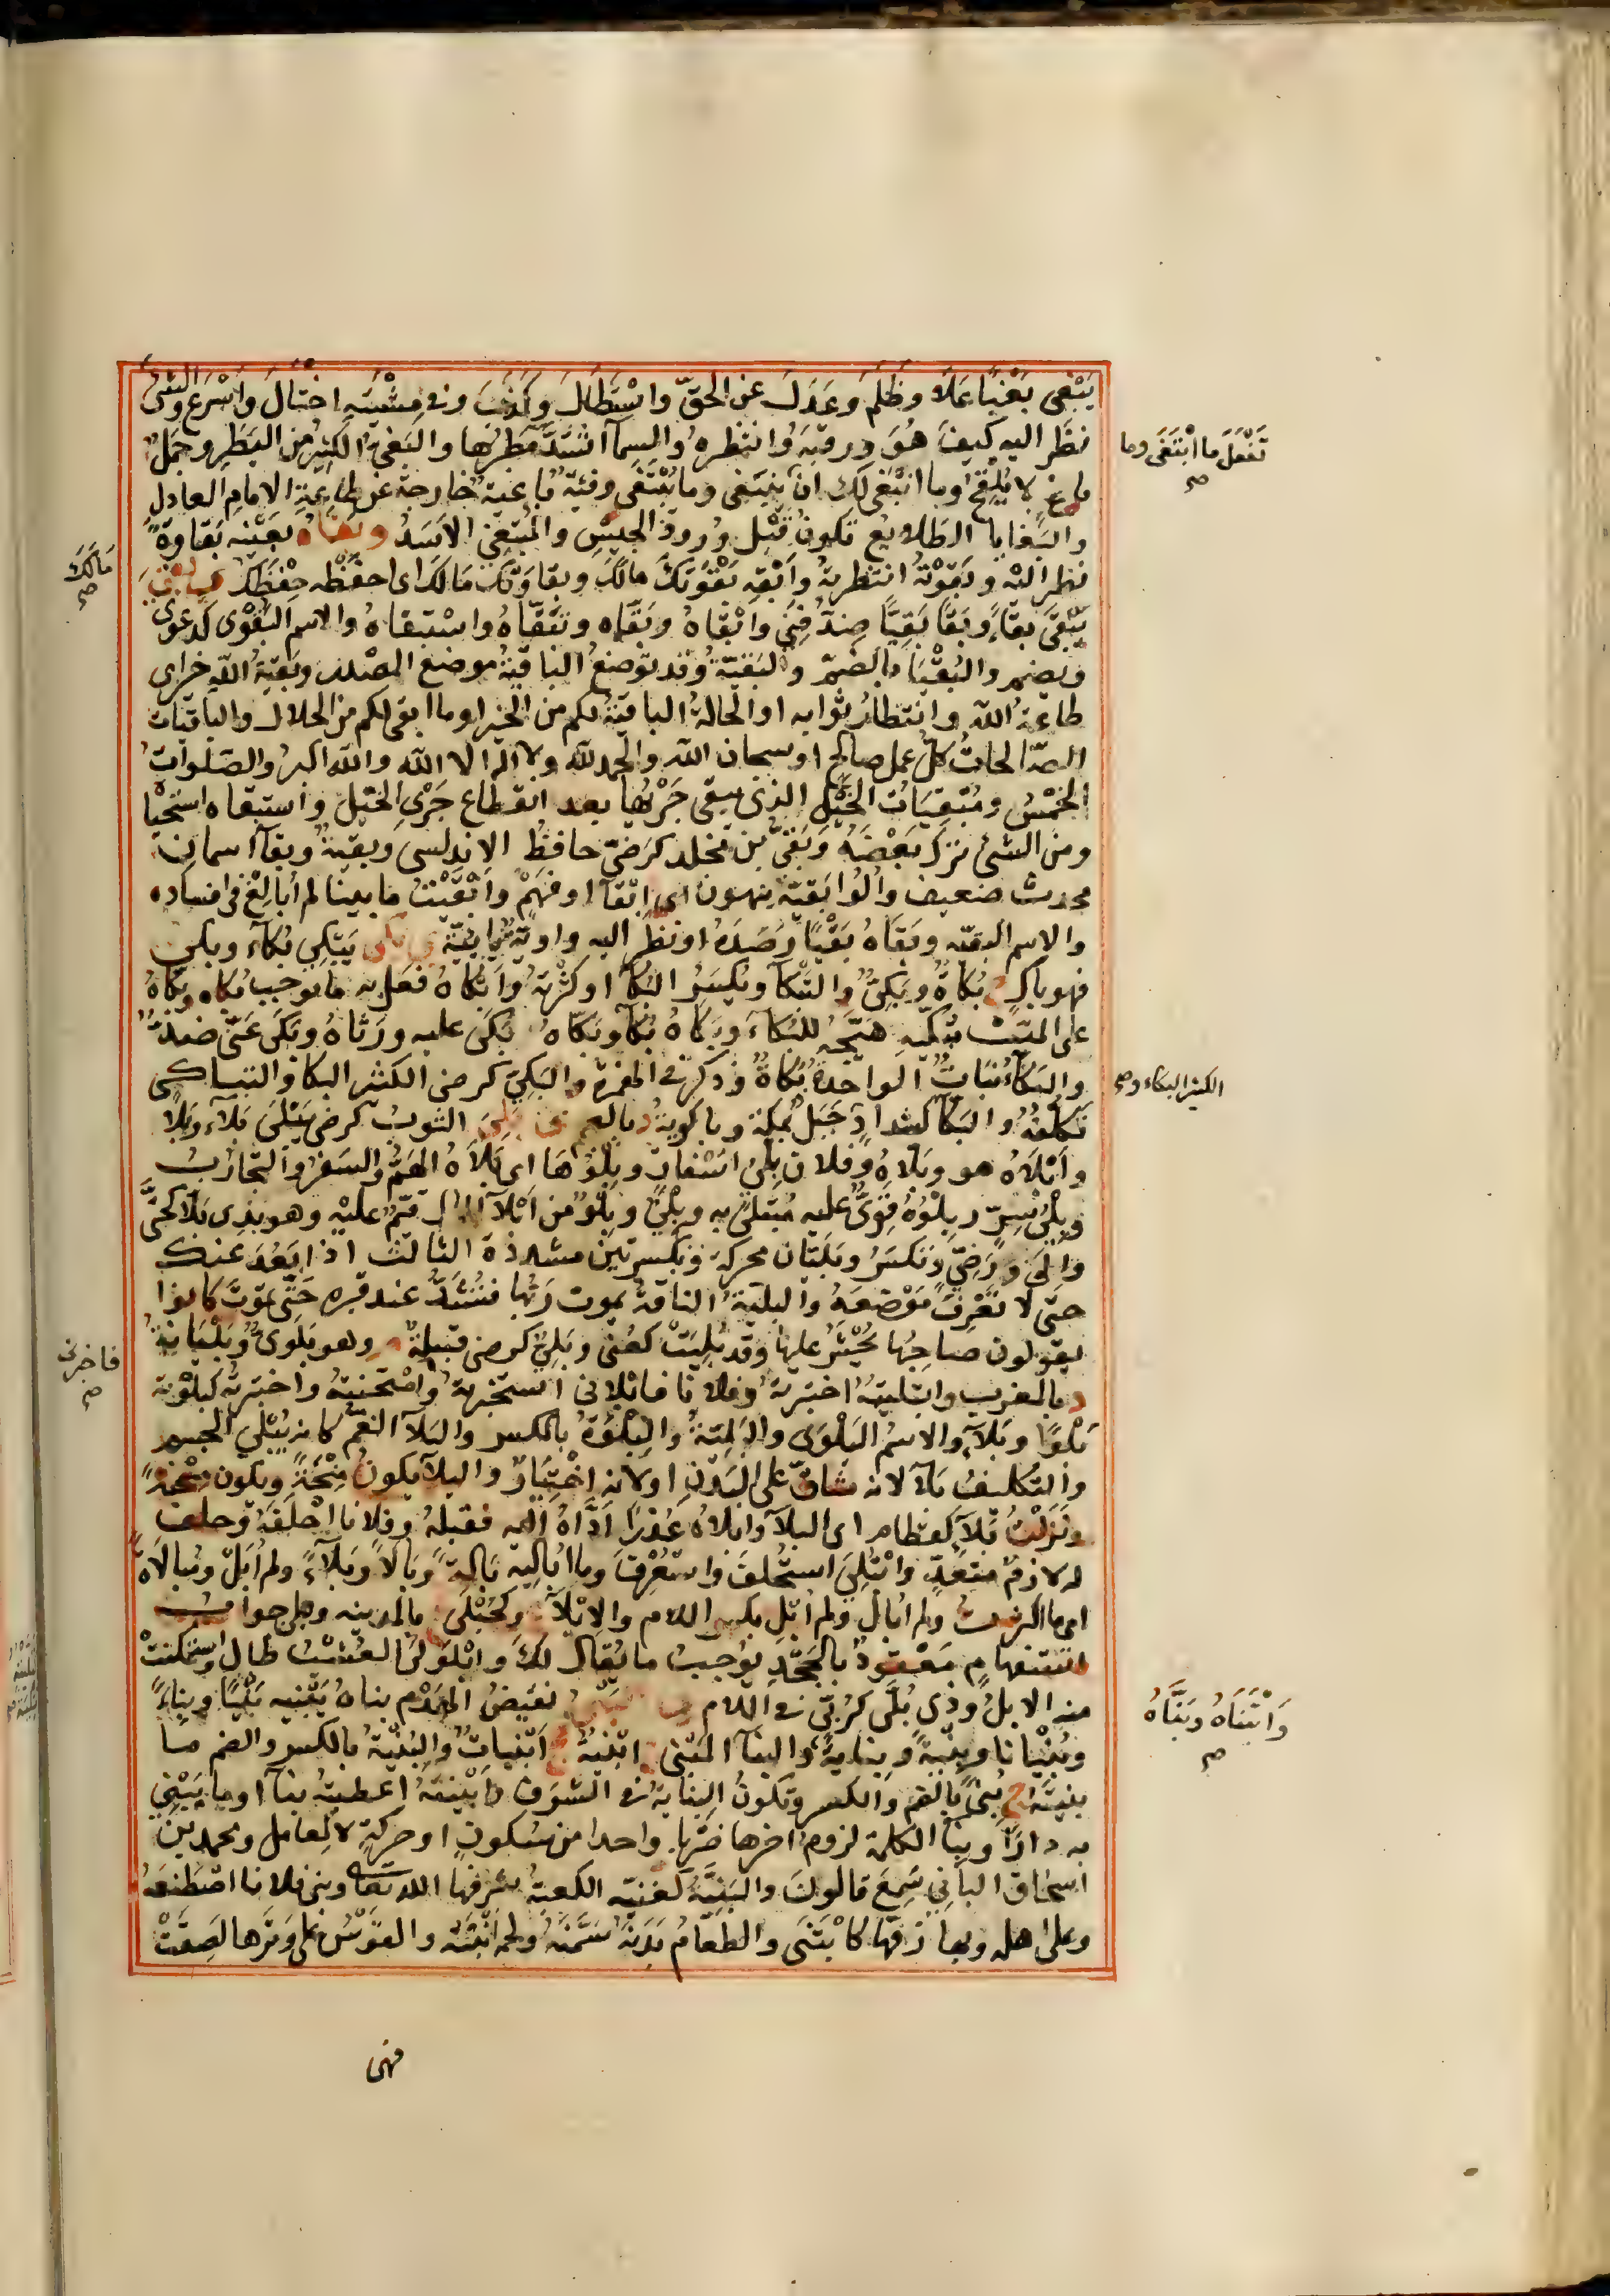 يَبْغى بَغْيًا عَلاَ وظَلَمَ وعَدَلَ عن الحقّ واسْتَطَالَ وكَذَبَ وفى مِشْيَتِه اخْتالَ وأسْرَعَ والشئ
نظَر اليه كيفَ هُوَ ورقبَهُ وانتَظرهُ والسمآ اشتدَّ مَطرُها والبَغىُ الكثيرُ من البَطَرِ وجَمَلٌ
باغٍ لا يُلْقِحُ وما انْبَغى لك ان ينبَغى وما يُبْتَغى وفئةٌ باغيةٌ خارجة عن طاعةِ الامامِ العادلِ
والبَغايا الطلايع تكونُ قَبْل وُرودِ الجيشِ والمُبْتَغِى الاسَدُ وبقاه بعَيْنه بَقَاوةً
نظر اليْه وبَقوْتهُ انتظرتهُ وابْقِه بَقْوَتَكَ مالَكَ وبقاوتَك مَالكَ اى احفَظْه حِفظَكَ ى بقى
يَبْقَى بقآءً وبَقَا بَقْيًا ضِدّ فنِىَ وابْقاهُ وبَقّاه وتبَقّاهُ واستبقاهُ والاسم البَقْوَى كدعوى
ويضم والبُقْيَا بالضمّ والبَقيّةُ وقد توضعُ الباقيَةُ موضع المصْدر وبَقيّةُ اللّهِ خير اى
طاعةُ اللّهِ وانتظارُ ثوابه او الحالةُ الباقيَةُ لكم من الخير او ما ابقى لكم من الحلال والباقيات
الصّالحاتُ كلُّ عمل صالح او سبحان اللّه والحمد للّه ولا اله الا اللّه واللّه اكبرُ والصَّلواتُ
الخمْسُ ومُبْقِيَاتُ الخَيْل الذى يبقى جَرْيُها بعد انقطاع جَرْىِ الخيْلِ واستبقاه استحيا
ومن الشئ تركَ بعْضَهُ وبَقِىُّ بن مَخلد كرَضىّ حافظُ الاندلس وبقيّةُ وبقآ اسمان
محدث ضعيف وأُلُوا بَقيّة ينهون اى ابقآ او فهَمٍ وابْقَيْتُ ما بيننا لم أُبالِغْ فى افساده
والاسم البقيّه وبَقَاهُ بَقْيًا رَصَدَهُ او نظر اليه واويّة يائيّة ى بكى يَبْكِى بُكآءً وبكى
فهو باكٍ ج بُكاةٌ وبُكِىٌّ والتَبْكآ ويُكسَرُ البُكآ او كثْرتهُ وابْكاهُ فعَل به ما يوجب بُكاه وبَكّاهُ
على الميّت تَبْكيه هَيّجَهُ للبُكآءِ وبكاهُ بُكآ وبَكّاهُ بَكَى عليه ورَثاهُ وبَكَى غَنّى ضِدٌّ
والبَكآءُ نَبَاتٌ الواحدة بَكاةٌ وذكر فى الهمزة والبَكِىّ كرضى الكثير البكا والتباكى
تكلّفُهُ والبَكآ كشدادٍ جَبَلٌ بمَكّة وباكُويَةُ د بالعجم ى بلِىَ الثوبُ كرضى يَبْلَى بَلآءً وبِلاً
وابْلاهُ هو وبَلاَهُ وفلان بِلْىُ اسْفارٍ وبِلْوُها اى بَلاَهُ الهَمُّ والسفرُ والتجارُبُ
وبِلْىُ شرّ وبِلْوُهُ قوِىٌّ عليه مُبتلىً به وبِلْىٌ وبِلْوٌ من ابْلآ المال قيّمٌ عليْه وهو بذى بَلاّ كحَتّى
والى ورَضِىّ وتكسَرُ وبَلَيَان محركة وبكسرتين مشددة الثالث اذا بَعُدَ عنك
حتى لا تعْرِفَ مَوْضعَهُ والبليّةُ الناقةُ يموت رَبُّها فتُشَدُّ عند قبره حَتّى تموتَ كانوا
يقولون صاحبُها يُحْشَرُ عليها وقد بُلِيَتْ كعُنى وبَلِىّ كرضى قبيلةٌ م وهو بَلَوىٌّ وبَلْيَانةُ
د بالمغرب وابتليتهُ اختبرتهُ وفلانا فابْلانى استخبرتهُ وامْتحنتهُ واختبرتُه كبَلَوْته
بَلْوًا وبَلآءً والاسم البَلْوَى والبَليّةُ والبِلْوَةُ بالكسر والبَلآ الغمّ كانه يُبْلى الجسم
والتكليفُ بلآ لانه شاقّ على البَدَنِ او لانه اخْتِبَارٌ والبلآ يكونُ مِنْحَةً ويكون مِحْنةً
ونَزَلَتْ بَلآءِ كقطامِ اى البلآ وابلاهُ عُذْرًا ادّاهُ اليه فقبلهُ وفلانا احْلفَهُ وحلَف
له لازمٌ متعَدٍّ وابْتُلِىَ استُحلفَ واستُعرِفَ وما اُباليه بَالةً وبَالاً وبَلآءً ولم اُبَالِ ومُبالاةً
اى ما اكترثتُ ولم اُبَالِ ولم اُبَلِ بكسر اللام والابْلآ وكحُبْلَى بالمدينه وبلى جوابُ
استفهامٍ مَعْقودٌ بالجَحْدِ يوجبُ ما يُقال لكَ وابْلَوْلَى العُشبُ طال واستمكنتْ
منه الابلُ وذى بُلَّى كرُبّى فى اللام نقيضُ الهَدْم بناهُ يَبْنيه بَنْيًا وبِناءً
وبُنْيانا وبِنْيَةً وبِنايةً والبنآ المَبْنى ج ابْنيَةٌ ج ابْنياتٌ والبُنْيَةُ بالكسر والضم ما
بنيتَهُ ج بُنىً بالضم والكسر وتكونُ البِنايةُ فى الشرَفِ وابْنيتهُ اعطيتهُ بنآ او ما يَبْنى
به دارًا وبنآ الكلمة لزومُ آخرها ضَرْبا واحدا من سُكونٍ او حركةٍ لا لعامل ومحمد بنُ
اسحاق البانى سَمِعَ قالونَ والبَنيّةُ كغنيّه الكعبةُ لشرفها اللّه تعالى وبنى فلانا اصْطنعَهُ
وعلى اهله وبها زفّها كابْتَنَى والطعامُ بَدَنَهُ سَمّنَهُ ولحمَه انْبَتَه والقَوْسُ على وتَرها لصِقَتْ
فهى
تَفْعَلَ ما ابْتَغَى وما صح
مَالَكَ صح
الكثير البكاء صح
فاخبرنى صح
وَابْتَنَاهُ وبَنّاهُ صح